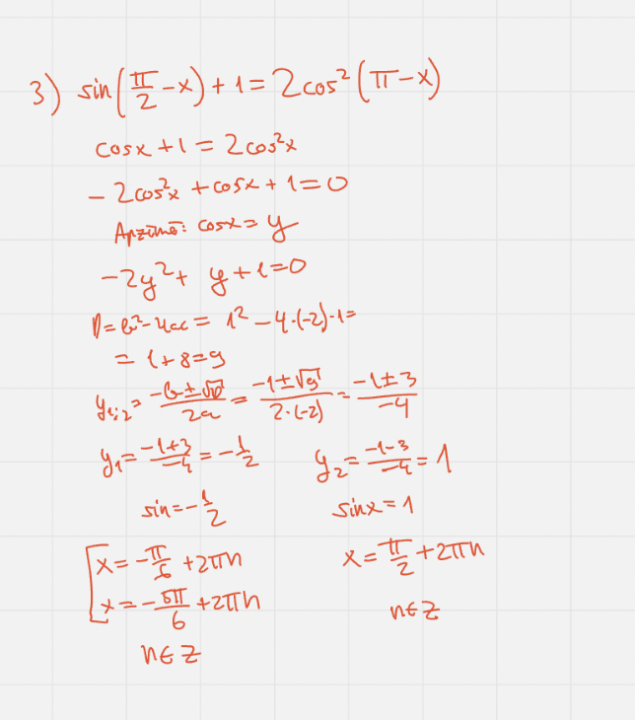 3) sin(π/2 - x) + 1 = 2cos²(π - x)
cosx + 1 = 2cos²x
- 2cos²x + cosx + 1 = 0
Apzīmē: cosx = y
-2y² + y + 1 = 0
D = b² - 4ac = 1² - 4·(-2)·1 =
= 1 + 8 = 9
y₁;₂ = (-b ± √D)/2a = (-1 ± √9)/(2·(-2)) = (-1 ± 3)/-4
y₁ = (-1 + 3)/-4 = -1/2 y₂ = (-1 - 3)/-4 = 1
sin = -1/2 sinx = 1
[ x = -π/6 + 2πn x = π/2 + 2πn
x = -5π/6 + 2πn n ∈ Z
n ∈ Z